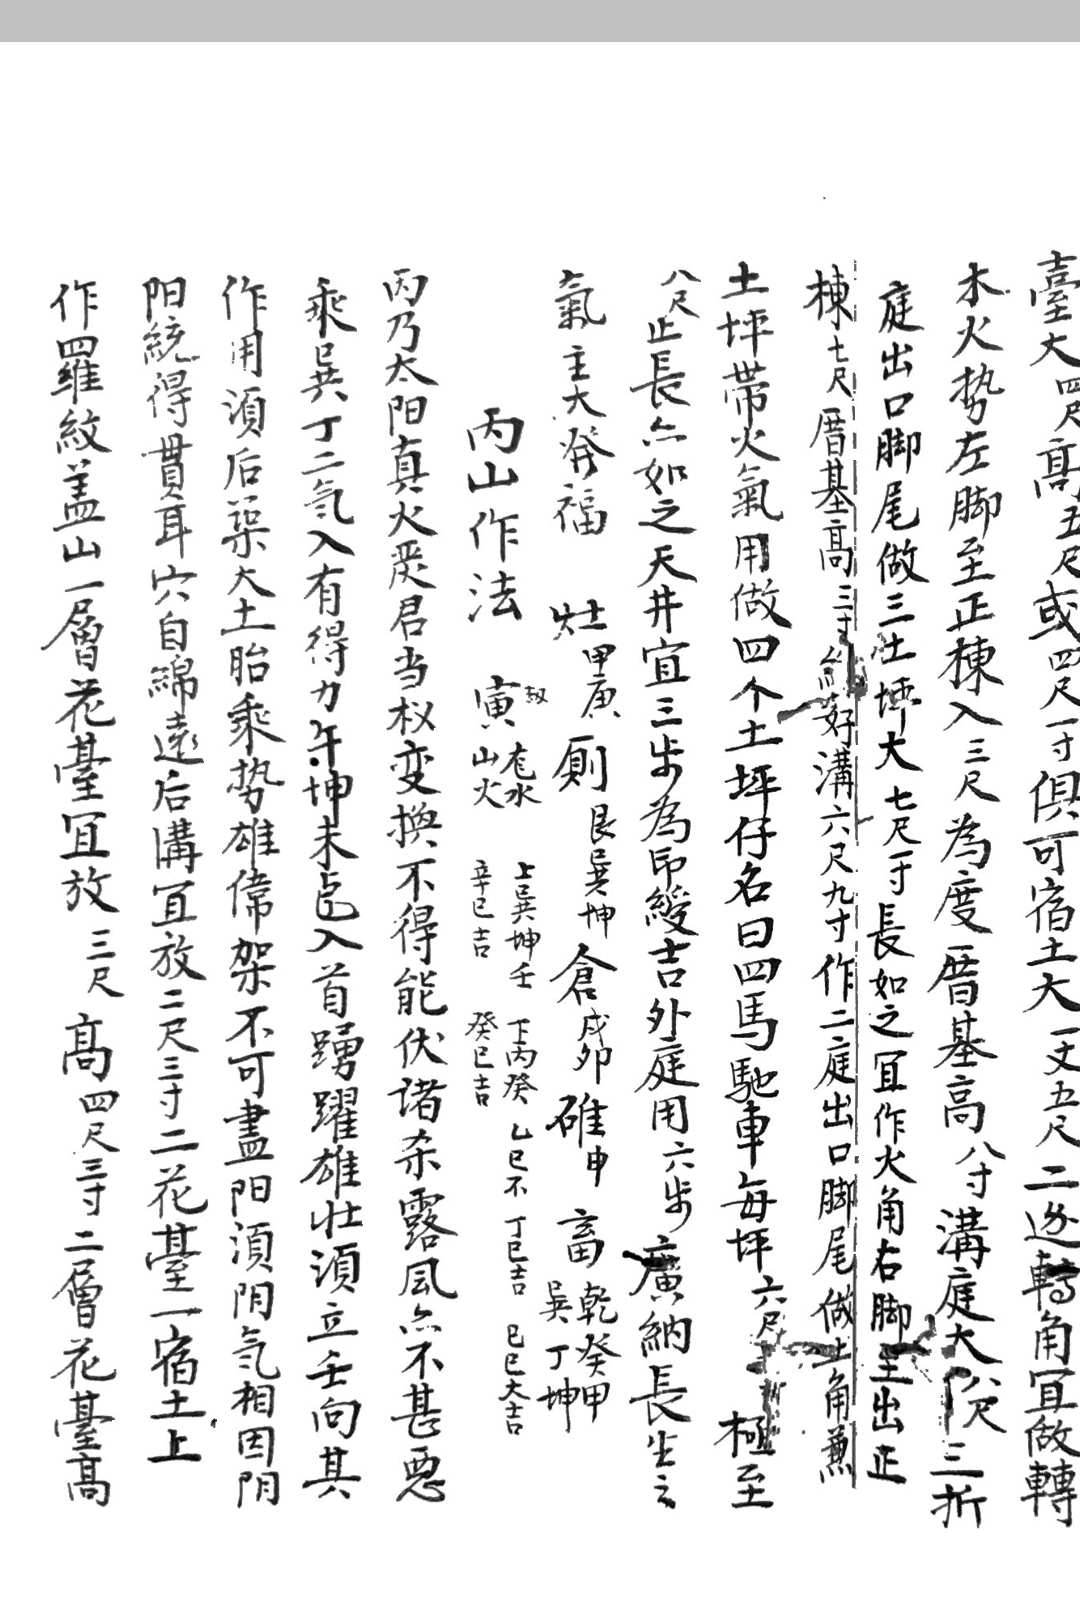 臺大四尺高五尺或四尺一寸俱可宿土大一丈五尺二边轉角冝做轉
水火势左脚至正棟入三尺為度厝基高八寸溝庭大八尺三折
庭出口脚尾做三土坪大七尺一寸長如之冝作火角右脚至出正
棟七尺厝基高三寸好溝六尺九寸作二庭出口脚尾做土角兼
土坪帶火氣用做四个土坪仔名曰四馬馳車每坪六尺極至
八尺止長亦如之天井宜三步為印綬吉外庭用六步廣納長生之
氣主大発福 灶甲庚厠艮巽坤倉戌卯碓申 畜乾癸甲巽丁坤
丙山作法 寅山火 水 上巽坤壬 辛巳吉 下丙癸 癸巳吉 乙巳不 丁巳吉 己巳大吉
丙乃太阳真火炭君当权变换不得能伏諸杀露风亦不甚恶
乘巽丁二气入有得力午坤未入首踴躍雄壮須立壬向其
作用須后渠大土胎乘势雄偉架不可盡阳須阴气相因阴
阳統得貫耳穴自綿遠后溝冝放二尺三寸二花臺一宿土上
作羅紋盖山一層花臺冝放三尺高四尺三寸二層花臺高